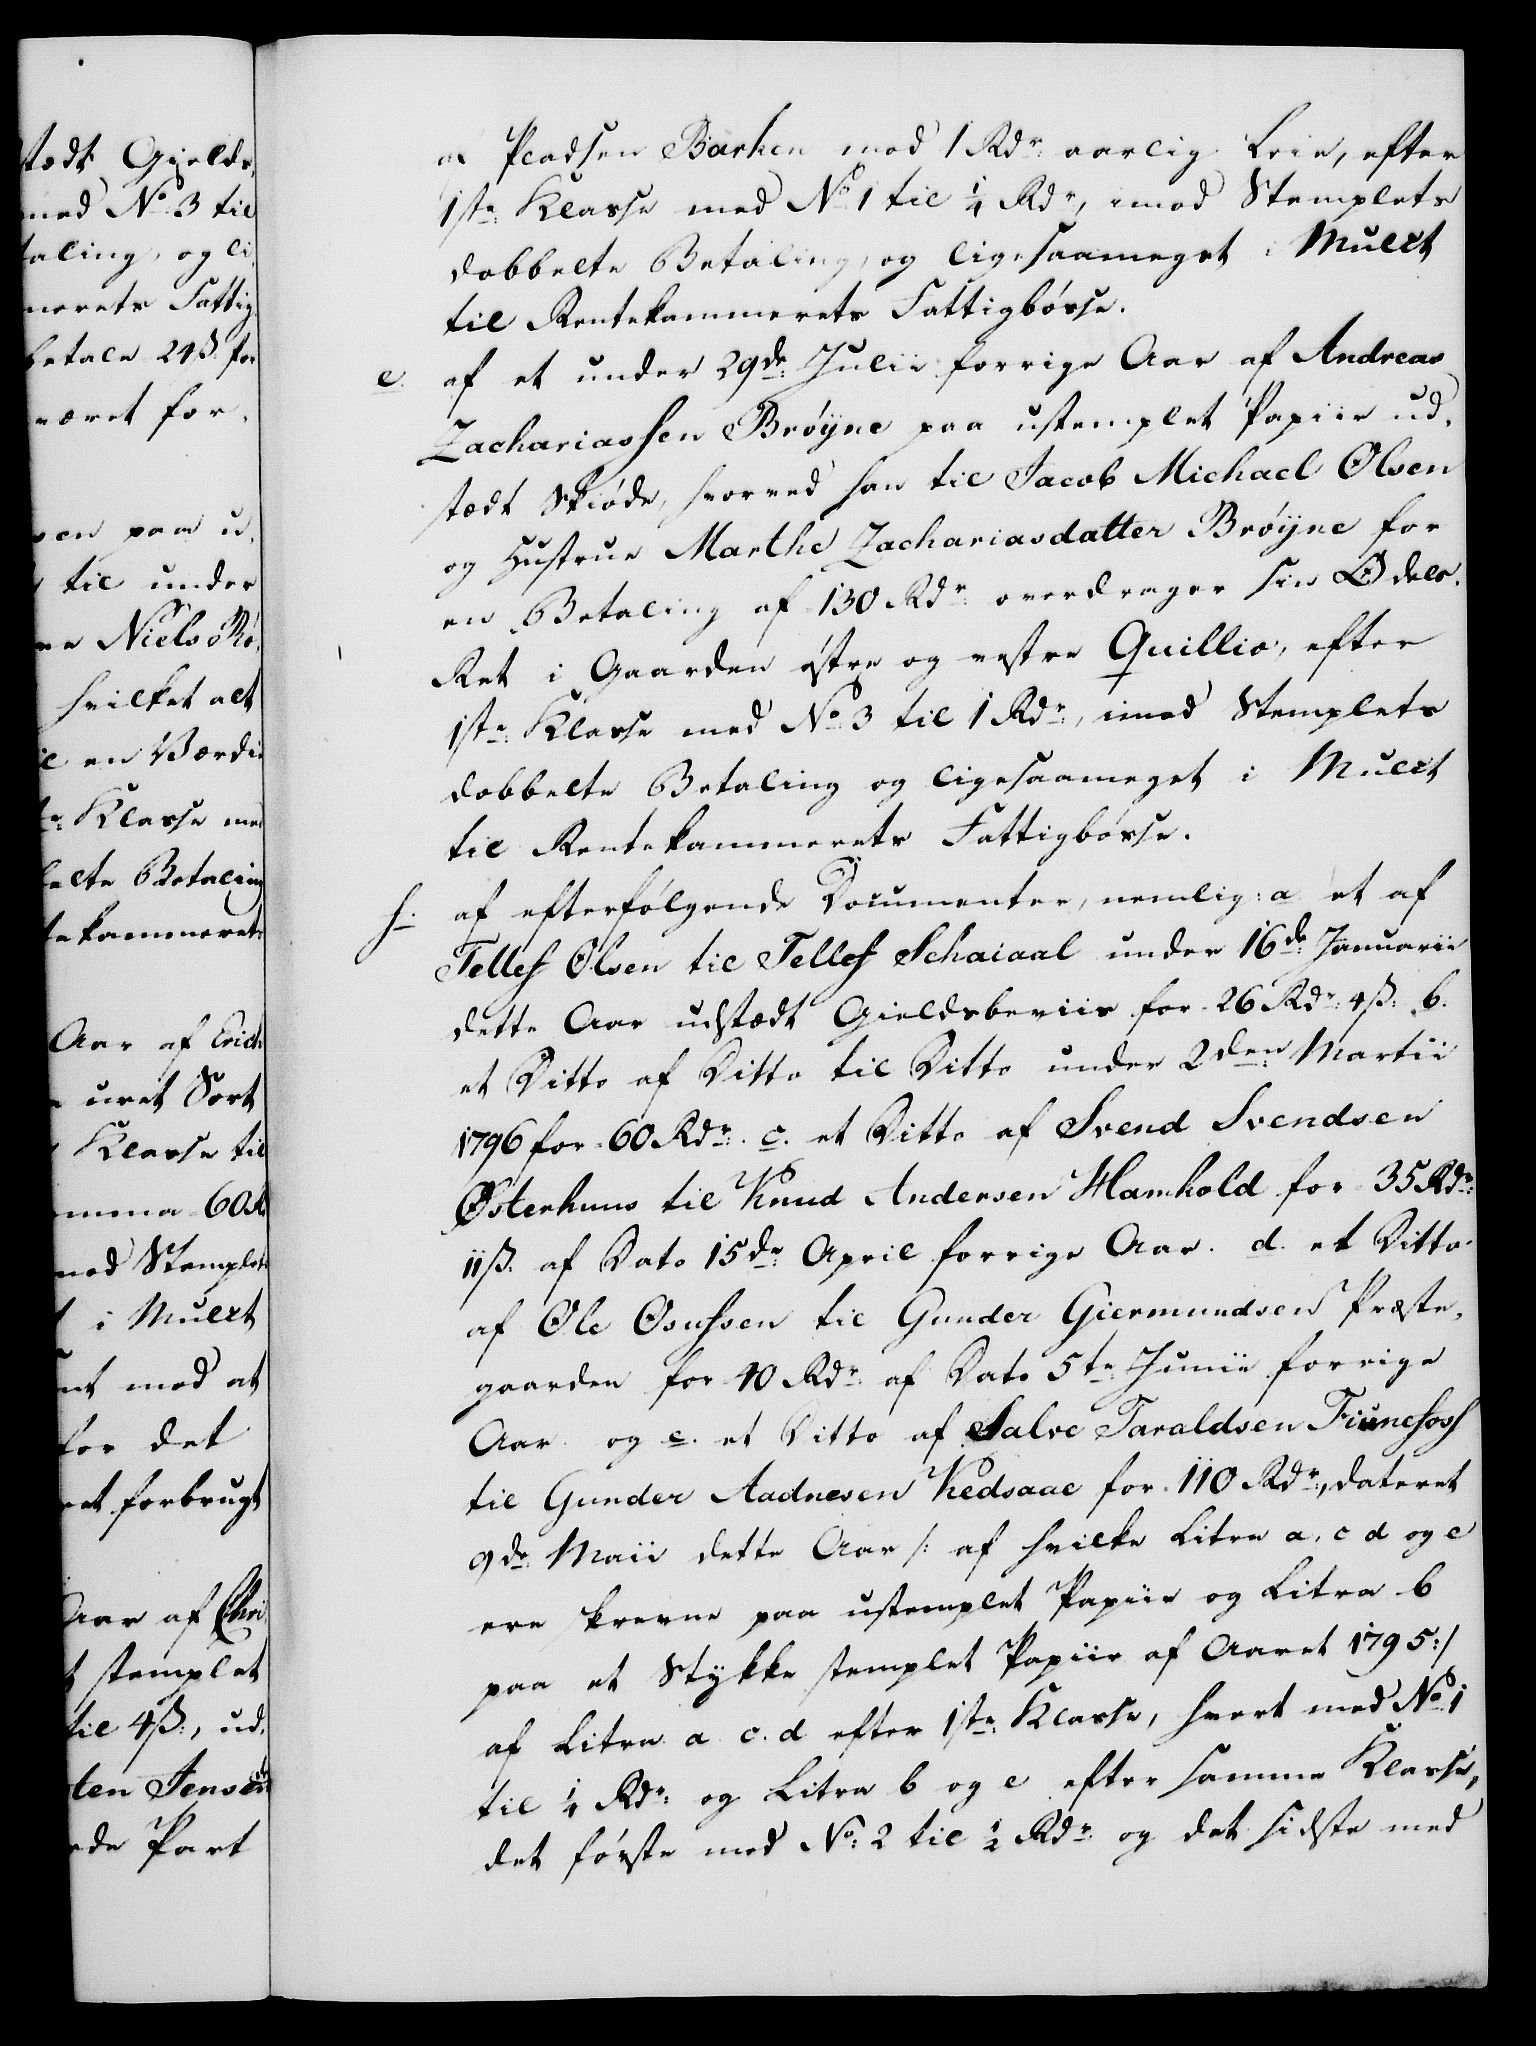 stædt Gields,
med No 3 til
taling, og li,
merets Fattig,
betale 24ß for
været for,
sen paa u,
til under
Niels Rö,
hvilket alt
en Værdi
Klasse med
belte Betaling
tekammerets
Aar af Erich
uret Sort
Klasse til
60 Rd
mod Stemplets
i Mulct
mod at
for det
forbrugt
Aar af Chri
stemplet
til 4ß:, ud,
ten Jensen
Part
af Pladsen Barken mod 1 Rdr: aarlig Leie, efter
1ste: Klasse med No 1 til 1/4 Rdr, imod Stemplets
dobbelte Betaling, og ligesaameget i Mulct
til Rentekammerets Fattigbøsse.
e. af et under 29de: Julii forrige Aar af Andreas
Zachariassen Brøÿne paa ustemplet Papiir ud,
stædt Skiøde, hvorved han til Jacob Michael Olsen
og Hustrue Marthe Zachariasdatter Brøÿne for
en Betaling af 130 Rdr: overdrager sin Odels,
Ret i Gaarden østre og vestre Quillio, efter
1ste: Klasse med No 3 til 1 Rdr:, imod Stemplets
dobbelte Betaling og ligesaameget i Mulct
til Rentekammerets Fattigbøsse.
f. af efterfølgende Documenter, nemlig: a et af
Tellef Olsen til Tellef Schaiaal under 16de: Januarii
dette Aar udstædt Gieldsbeviis for 26 Rdr: 4ß: b.
et Ditto af Ditto til Ditto under 2den: Martii
1796 for 60 Rdr:. c. et Ditto af Svend Svendsen
Østerhuus til Knud Andersen Hamkold for 35 Rdr:
11ß. af Dato 15de: April forrige Aar. d. et Ditto
af Ole Osufsen til Gunder Giermundsen Præste,
gaarden for 40 Rdr: af Dato 5te: Junii forrige
Aar og e. et Ditto af Salve Taraldsen Fiunefoss
til Gunder Aadnesen Kedsaae for 110 Rdr:, dateret
9de: Maii dette Aar /: af hvilke Litra a. c d og e
ere skrevne paa ustemplet Papiir og Litra b
paa et Stÿkke stemplet Papiir af Aaret 1795:/
af Litra a c. d efter 1ste: Klasse, hvert med No 1
til 1/4 Rdr: og Litra b og e efter samme Klasse,
det første med No: 2 til 1/2 Rdr: og det sidste med